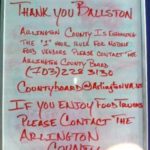 THANK YOU BALLSTON
ARLINGTON COUNTY IS ENFORCING
THE "1" HOUR RULE FOR MOBILE
FOOD VENDORS. PLEASE CONTACT THE
ARLINGTON COUNTY BOARD
(703) 228 3130
COUNTYBOARD@ARLINGTONVA.US
IF YOU ENJOY FOOD TRUCKS
PLEASE CONTACT THE
ARLINGTON
COUNTY